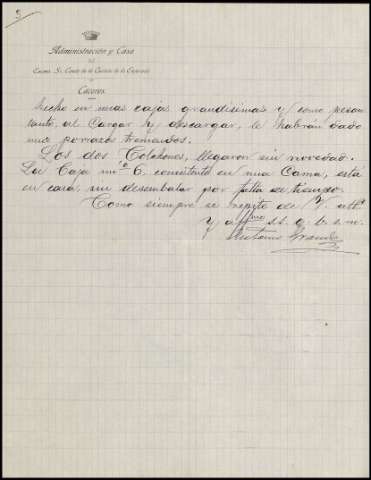 3
Administración y Casa
DEL
Excmo. Sr. Conde de la Camorra de la Enjarada
Cáceres.
hecho en unas cajas grandísimas y como pesan
tanto, al Cargar y descargar, le habrán dado
unos porrazos tremendos.
Los dos Colchones, llegaron sin novedad.
La Caja nº 6, consistente en una Cama, está
en casa, sin desembalar por falta de tiempo.
Como siempre se repite de V. attº
y affmo s.s. q. b. s. m.
Antonio